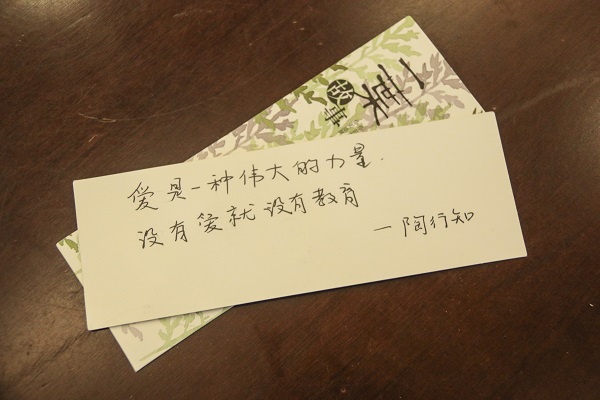 一葉
故事
爱是一种伟大的力量.
没有爱就没有教育
—陶行知